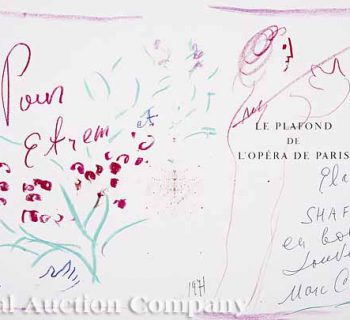 Pour
et
LE PLAFOND
DE
L'OPÉRA DE PARIS
SHAF
en bo
Marc C
1971
al Auction Company